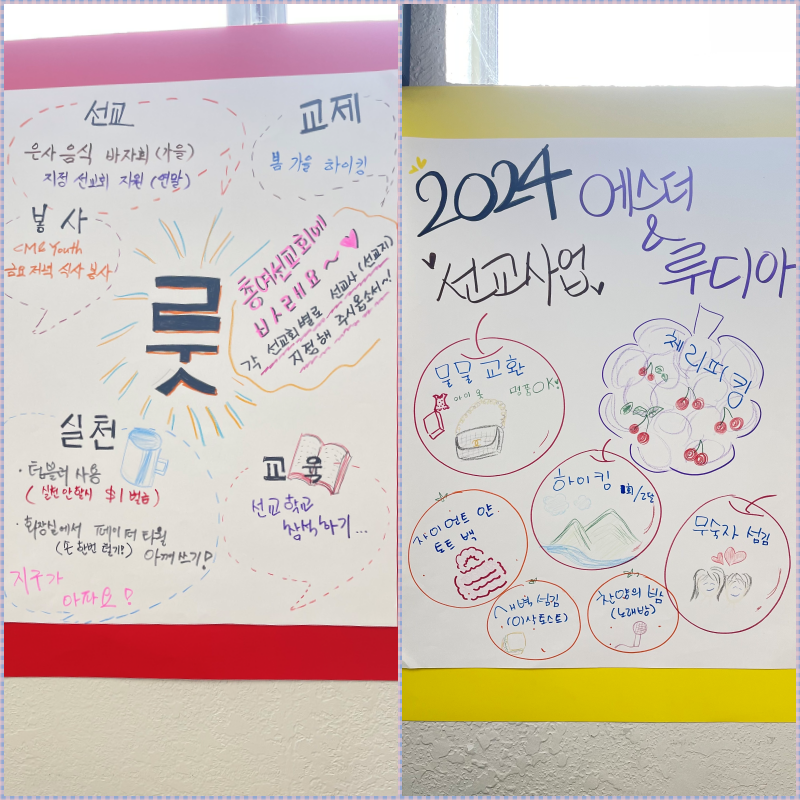 선교
은사 음식 바자회 (가을)
지정 선교회 지원 (연말)
교제
봄 가을 하이킹
봉사
CM& Youth
금요 저녁 식사 봉사
룻
총여선교회에
바래요~
각 선교회별로 선교사 (선교지)
지정해 주시옵소서~!
실천
· 텀블러 사용
( 실천 안할시 $1 벌금)
· 화장실에서 페이퍼 타월
(손 한번 털기!) 아껴쓰기!
지구가
아파요!
교육
선교학교
참석하기...
2024 에스더
&
루디아
선교사업
물물 교환
아이옷 명품OK!
체리피킹
하이킹 1회/2달
자이언트 얀
토트 백
무숙자 섬김
새벽 섬김
(이삭토스트)
찬양의 밤
(노래방)